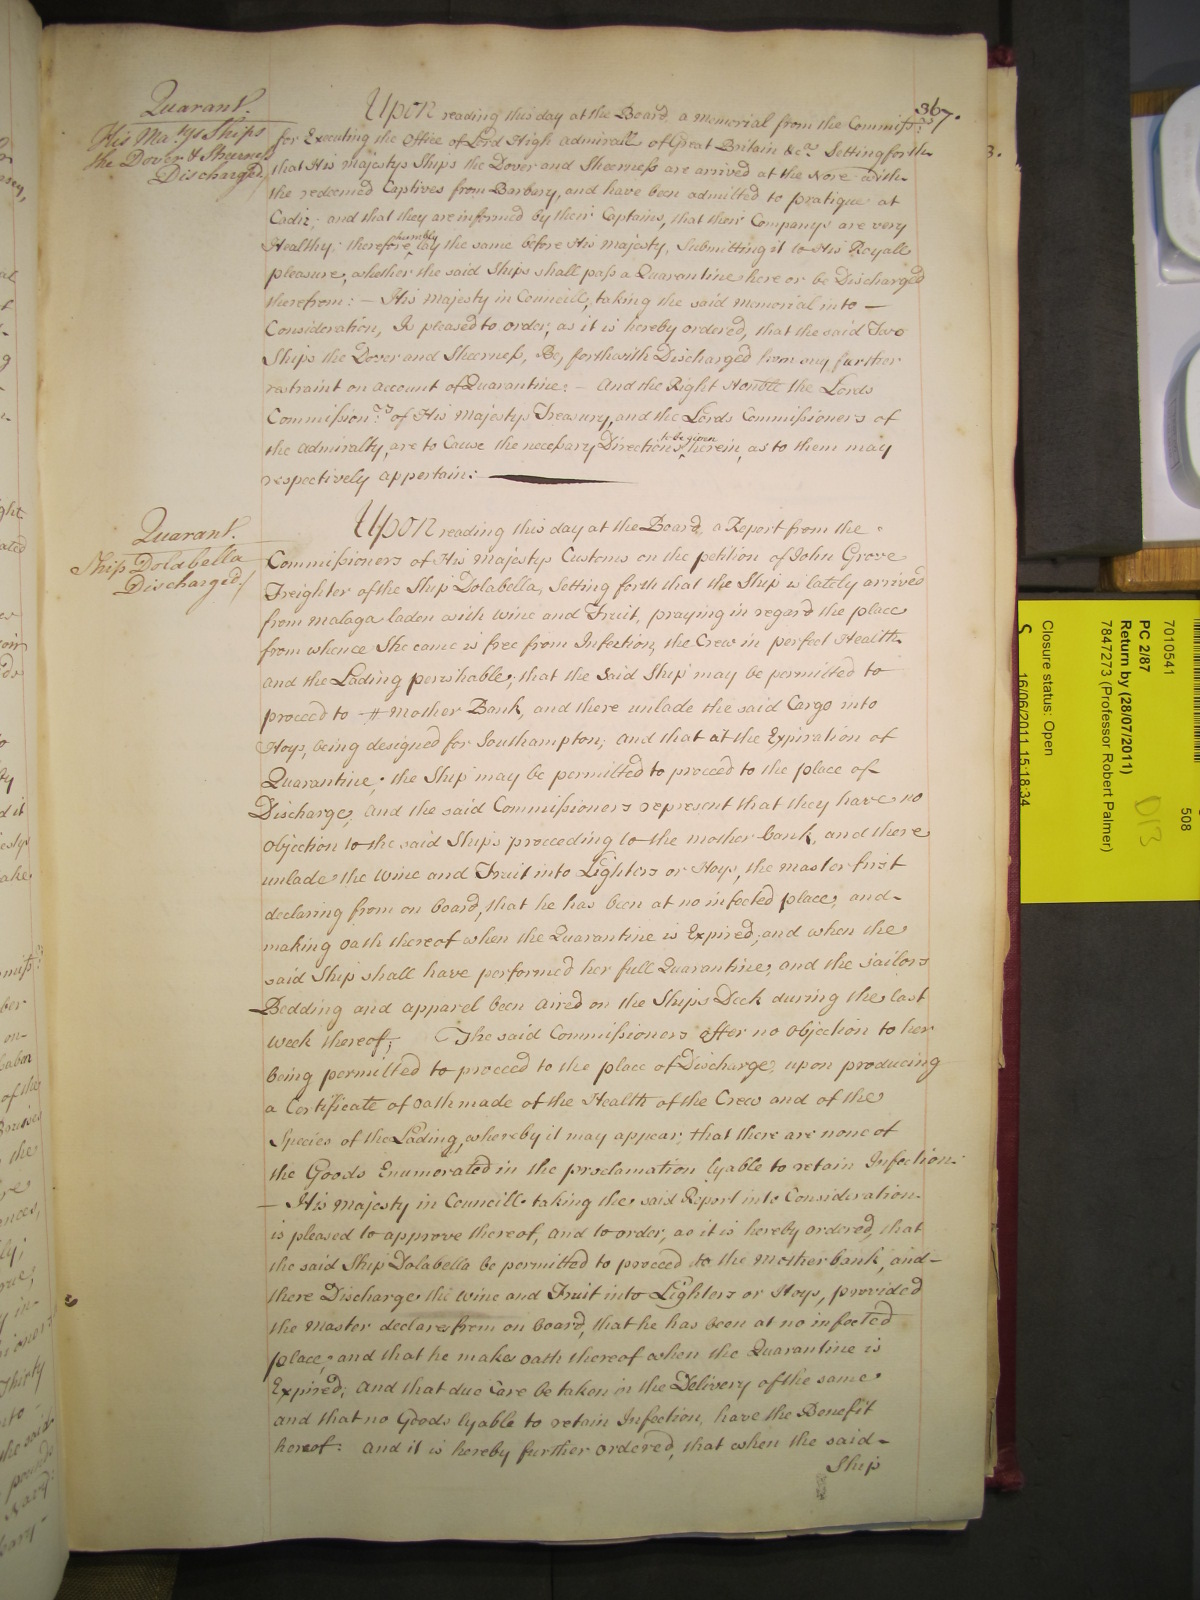 367.
Quarant.
His Ma:tys Ships
the Dover & Sheerness
Discharged
Upon reading this day at the Board, a Memorial from the Commiss:rs
for Executing the Office of Lord High Admirall of Great Britain &ca. Setting forth
that His Majestys Ships the Dover and Sheerness are arrived at the Nore with
the redeemed Captives from Barbary, and have been admitted to pratique at
Cadiz; and that they are informed by their Captains, that their Companys are very
Healthy; therefore humbly lay the same before His Majesty, Submitting it to His Royall
pleasure, whether the said Ships shall pass a Quarantine here or be Discharged
therefrom: — His Majesty in Councill, taking the said Memorial into —
Consideration, Is pleased to order, as it is hereby ordered, that the said Two
Ships the Dover and Sheerness, Be, forthwith Discharged from any further
restraint on account of Quarantine: — And the Right Honble the Lords
Commission:rs of His Majestys Treasury, and the Lords Commissioners of
the Admiralty, are to Cause the necessary Directions to be given herein, as to them may
respectively appertain: —
Quarant.
Ship Dolabella
Discharged/
Upon reading this day at the Board, a Report from the
Commissioners of His Majestys Customs on the petition of John Grove
Freighter of the Ship Dolabella, Setting forth that the Ship is lately arrived
from Malaga laden with Wine and Fruit, praying in regard the place
from whence She came is free from Infection, the Crew in perfect Health
and the Lading perishable, that the Said Ship may be permitted to
proceed to Mother Bank, and there unlade the said Cargo into
Hoys, being designed for Southampton; and that at the Expiration of
Quarantine, the Ship may be permitted to proceed to the place of
Discharge, And the said Commissioners represent that they have no
objection to the said Ships proceeding to the mother bank, and there
unlade the Wine and Fruit into Lighters or Hoys, the master first
declaring from on board, that he has been at no infected place, and-
making oath thereof when the Quarantine is Expired, and when the
said Ship shall have performed her full Quarantine, and the sailors
Bedding and apparel been aired on the Ships Deck during the last
week thereof; The said Commissioners offer no objection to her
being permitted to proceed to the place of Discharge, upon producing
a Certificate of oath made of the Health of the Crew and of the
Species of the Lading, whereby it may appear, that there are none of
the Goods Enumerated in the proclamation lyable to retain Infection.
— His Majesty in Councill taking the said Report into Consideration
is pleased to approve thereof, and to order, as it is hereby ordered, that
the said Ship Dolabella be permitted to proceed to the Motherbank, and-
there Discharge the Wine and Fruit into Lighters or Hoys, provided
the Master declare from on board, that he has been at no infected
place, and that he makes oath thereof when the Quarantine is
Expired; And that due Care be taken in the Delivery of the same
and that no Goods lyable to retain Infection, have the Benefit
hereof: And it is hereby further ordered, that when the said-
Ship
7010541
508
PC 2/87
Return by (28/07/2011)
7847273 (Professor Robert Palmer)
D13
Closure status: Open
S
16/06/2011 15:18:34